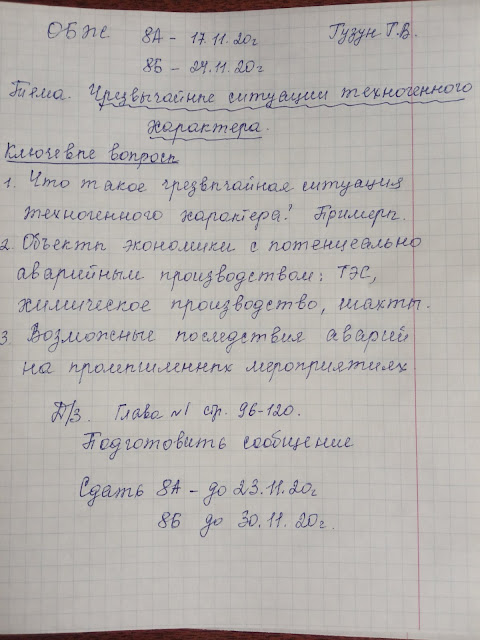 ОБЖ 8А - 17.11.20г Гузун Г.В.
8Б - 24.11.20г
Тема. Чрезвычайные ситуации техногенного
характера.
Ключевые вопросы
1. Что такое чрезвычайная ситуация
техногенного характера? Примеры.
2. Объекты экономики с потенцеально
аварийным производством: ТЭС,
химическое производство, шахты.
3. Возможные последствия аварий
на промышленных мероприятиях
Д/З. Глава №1 стр. 96-120.
Подготовить сообщение
Сдать 8А - до 23.11.20г
8Б до 30.11.20г.